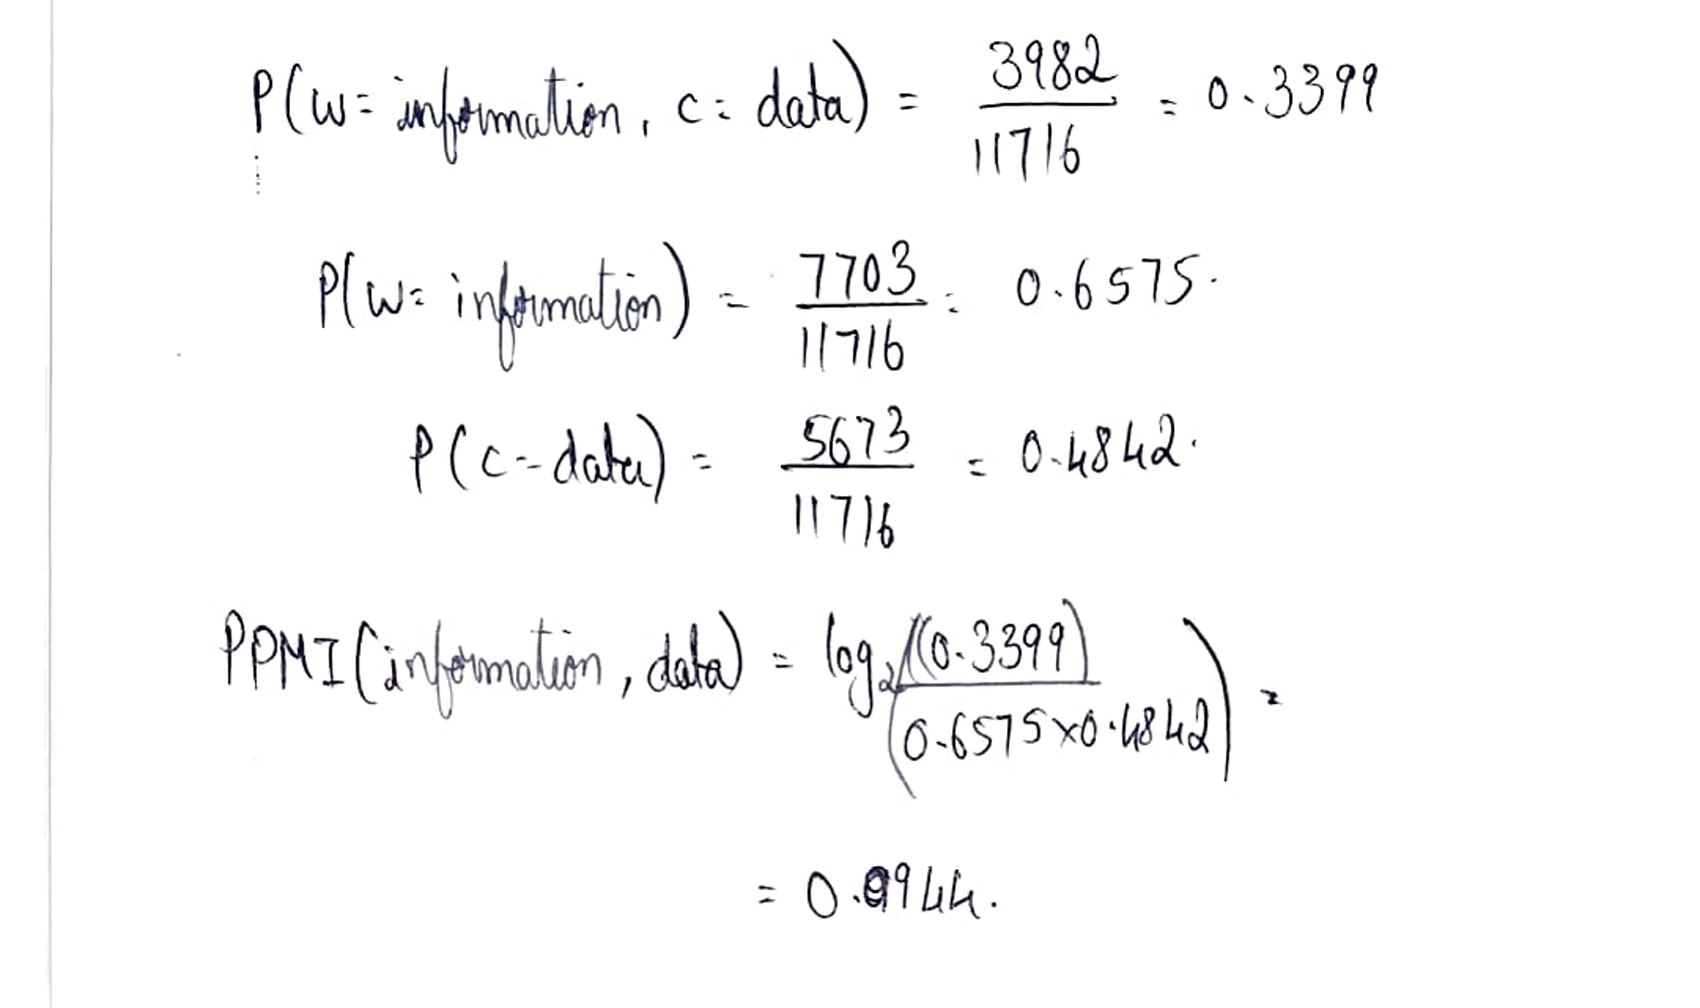 P(w = information, c = data) = 3982 / 11716 = 0.3399
P(w = information) = 7703 / 11716 = 0.6575.
P(c = data) = 5673 / 11716 = 0.4842.
PPMI(information, data) = log₂((0.3399) / (0.6575×0.4842)) =
= 0.0944.